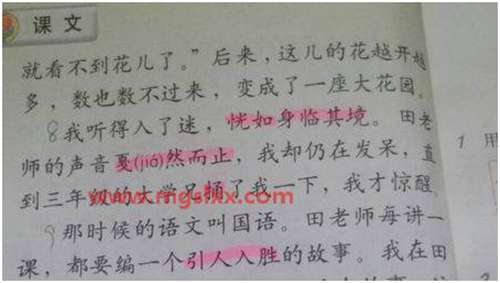 课文
就看不到花儿了。”后来，这儿的花越开越
多，数也数不过来，变成了一座大花园。
8我听得入了迷，恍如身临其境。田老
师的声音戛(jiá)然而止，我却仍在发呆，直
到三年级的大学兄捅了我一下，我才惊醒。
www.mgslxx.com
9那时候的语文叫国语。田老师每讲一
课，都要编一个引人入胜的故事。我在田
1 用